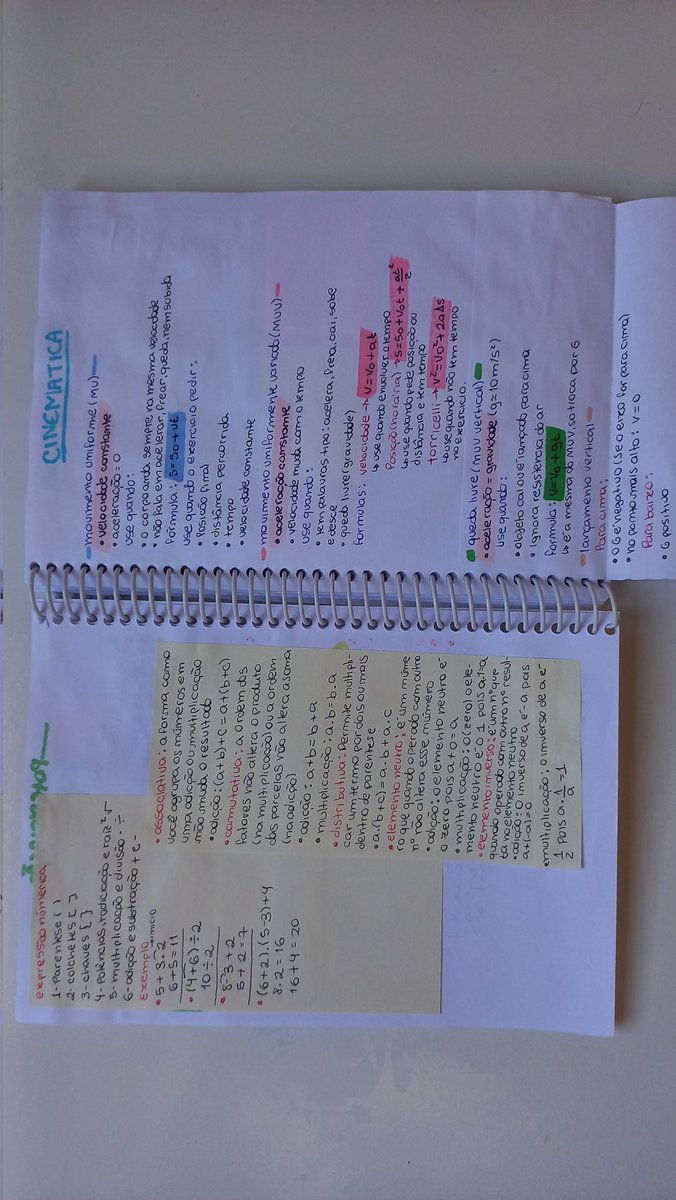 expressão númerica
1- Parentese ( )
2- colchetes [ ]
3- chaves { }
4- Potências, radiciação e raiz ² √
5- multiplicação e divisão · ÷
6- adição e subtração + e -
Exemplo
• 5 + 3 · 2 → INICIO
6 + 5 = 11
• (4 + 6) ÷ 2
10 ÷ 2
• 8 - 3 + 2
5 + 2 = 7
• (6 + 2) . (5 - 3) + 4
8 . 2 = 16
16 + 4 = 20
• associativa: a forma como
você agrupa os números em
uma adição ou multiplicação
não muda o resultado
• adição: (a+b)+c = a+(b+c)
• comutativa: a ordem dos
fatores não altera o produto
(na multiplicação) ou a ordem
das parcelas não altera a soma
(na adição)
• adição: a+b = b+a
• multiplicação: a·b = b·a
• distributiva: Permite multipli-
car um termo por dois ou mais
dentro de parentese
• a·(b+c) = a·b + a·c
• elemento neutro: é um núme
ro que quando operado com outro
nº não altera esse número
• adição: o elemento neutro é
o zero pois a+0=a
• multiplicação: o (zero) o ele-
mento neutro é o 1 pois a.1=a
• elemento inverso: é um nº que
quando operado com outro nº resul-
ta no elemento neutro
• adição: o inverso de a é -a pois
a+(-a)=0
• multiplicação: o inverso de a é
1/2 pois a · 1/a = 1
CINEMATICA
movimento uniforme (MU)
• velocidade constante
• aceleração = 0
use quando:
• o corpo anda sempre na mesma velocidade
• não fala em acelerar, frear, queda, nem subida
formula: S = S0 + vt
use quando o exercicio pedir:
• Posição final
• distância percorrida
• tempo
• velocidade constante
movimento uniformemente variado (MUV)
• aceleração constante
• velocidade muda com o tempo
use quando:
• tem palavras tipo: acelera, freia, cai, sobe
e desce
• queda livre (gravidade)
formulas: velocidade → V = V0 + at
↳ use quando envolver o tempo
Posição (horaria) → S = S0 + V0t + at²/2
↳ use quando pede posição ou
distância e tem tempo
torricelli → V² = V0² + 2aΔs
↳ use quando não tem tempo
no exercicio.
queda livre (MUV vertical)
• aceleração = gravidade (g = 10 m/s²)
use quando:
• objeto cai ou é lançado para cima
• ignora resistencia do ar
formula: V = V0 + gt
↳ é a mesma do MUV, so troca por G
lançamento vertical
Para cima:
• o G é negativo (se o eixo for para cima)
• no ponto mais alto: V = 0
Para baixo:
• G positivo